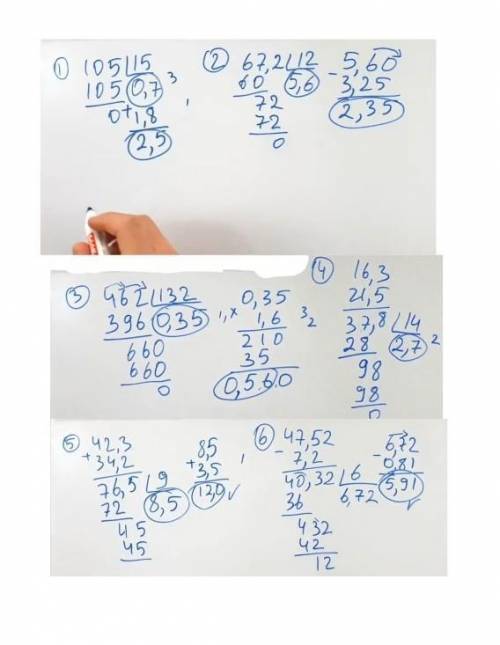 ① 105 15
105 0,7 3
0 + 1,8 ,
2,5
② 67,2 12
60 5,6
72
72
0
- 5,60
3,25
2,35
③ 462 132
396 0,35
660
660
0
, × 0,35
1,6 3 2
210
35
0,560
④ 16,3
21,5
37,8 14
28 2,7 2
98
98
0
⑤ + 42,3
34,2
76,5 9
72 8,5
45
45
8,5 ,
+ 3,5
12,0 ✓
⑥ - 47,52
7,2
40,32 6
36 6,72
432
42
12
- 6,72
0,81
5,91 ✓